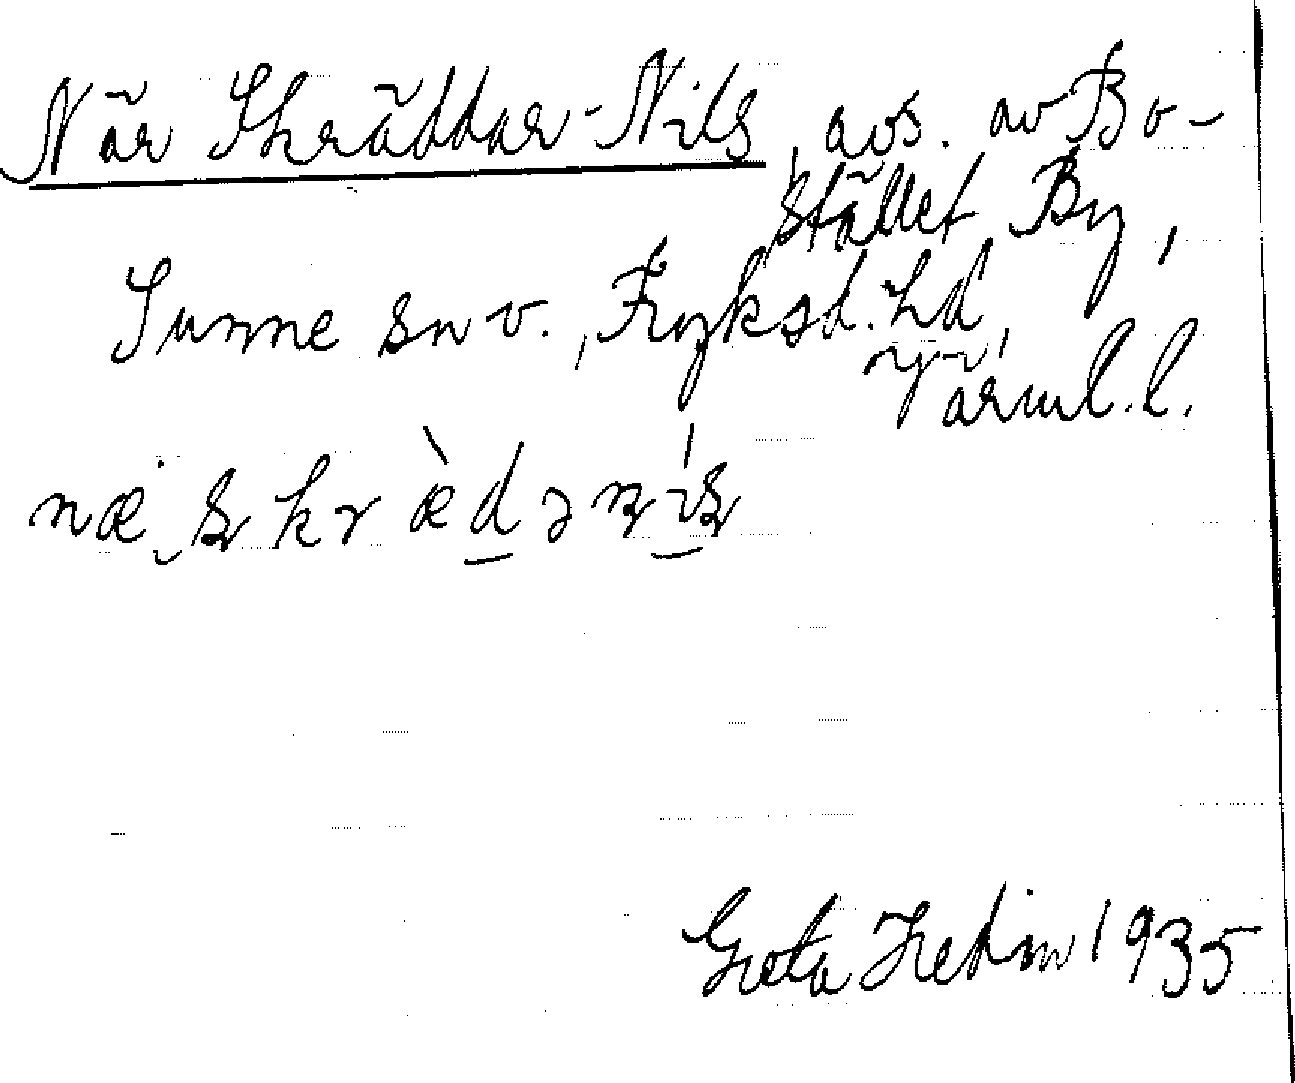 När Skräddar-Nils, avs. av Bo-
stället By,
Sunne sn v., Fryksd. hd,
Värml. l.
Greta Hedin 1935